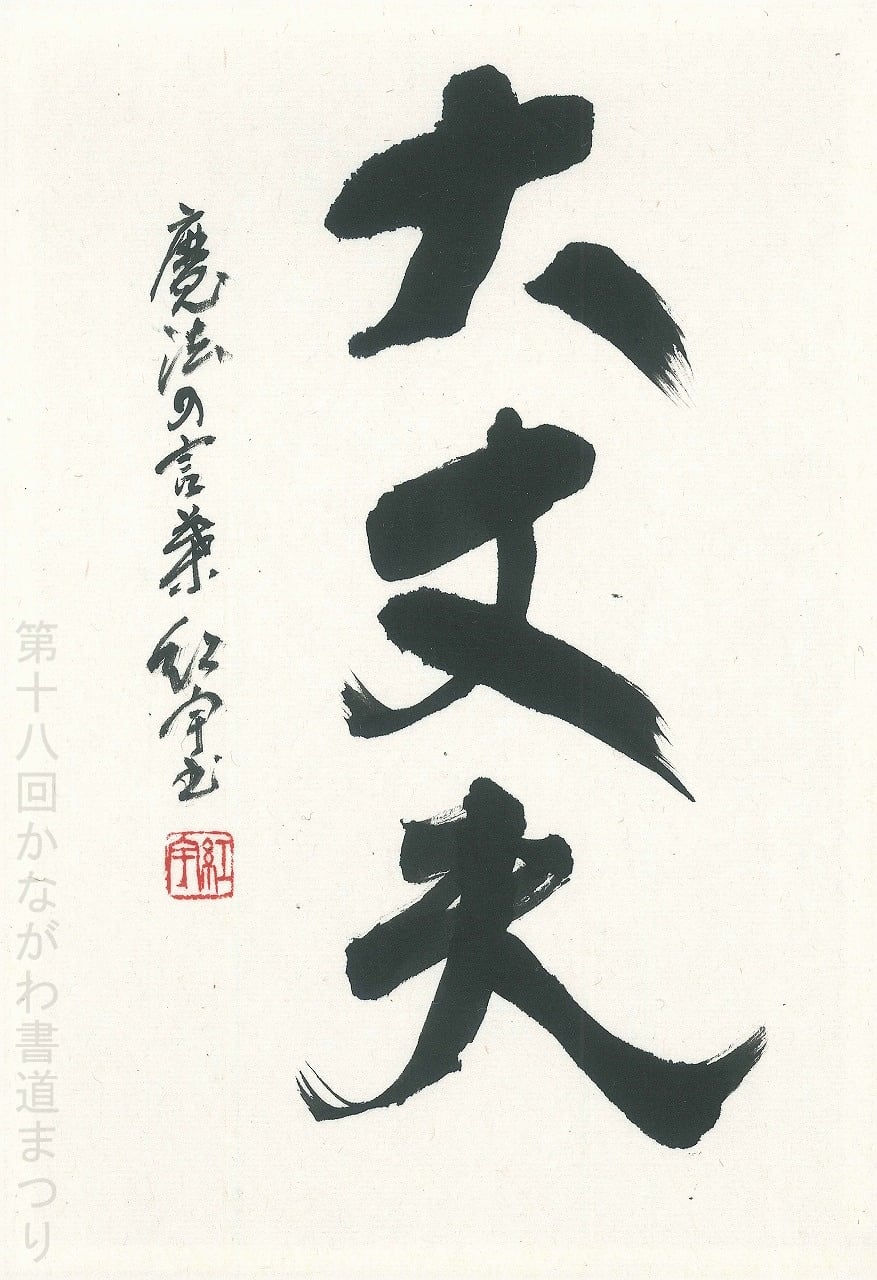 大丈夫
魔法の言葉 紅宇書
紅宇
第十八回かながわ書道まつり